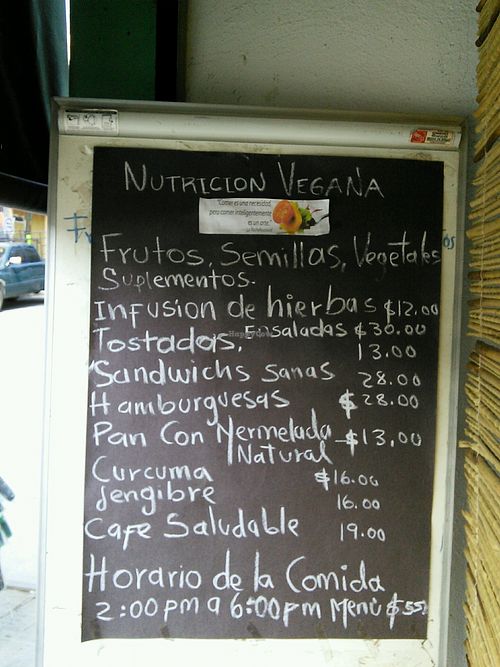 NUTRICION VEGANA
"Comer es una necesidad,
pero comer inteligentemente
es un arte."
La Rochefoucauld
FRUTOS, SEMILLAS, Vegetales
SUPLEMENTOS.
INFUSION de hierbas $12.00
Tostadas, Ensaladas $30.00
13.00
Sandwichs sanas 28.00
Hamburguesas $28.00
Pan Con Mermelada $13.00
Natural
Curcuma $16.00
Jengibre 16.00
Cafe Saludable 19.00
Horario de la Comida
2:00 pm a 6:00 pm Menu $55